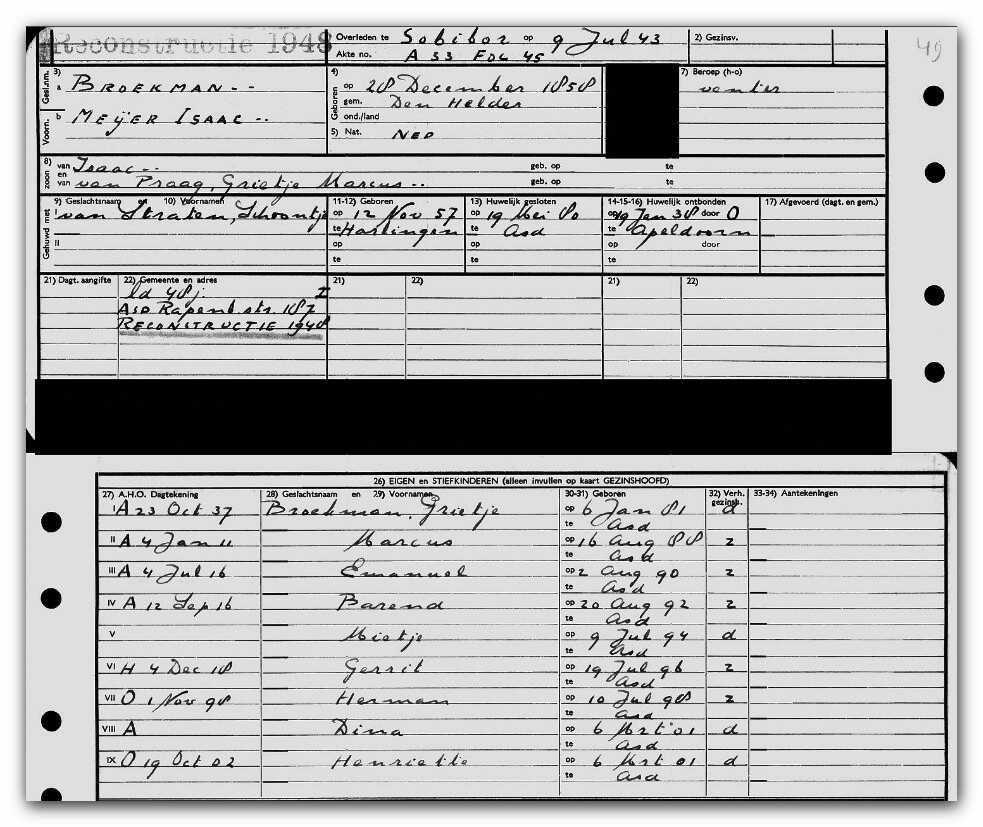 Reconstructie 1948
Overleden te Sobibor op 9 Jul 43
Akte no. A 33 Fol 45
2) Gezinsv.
49
Gesl.nm. 3) a BROEKMAN--
Voorn. b MEIJER ISAAC--
4) Geboren op 28 December 1858
gem. Den Helder
ond./land
5) Nat. NED
7) Beroep (h-o)
venter
8) zoon van Isaac-- geb. op te
en van van Praag, Grietje Marcus-- geb. op te
Gehuwd met
9) Geslachtsnaam en 10) Voornamen
I van Straten, Schoontje
II
11-12) Geboren
op 12 Nov 57
te Harlingen
op
te
13) Huwelijk gesloten
op 19 Mei 80
te Asd
op
te
14-15-16) Huwelijk ontbonden
op 19 Jan 38 door O
te Apeldoorn
op door
te
17) Afgevoerd (dagt. en gem.)
21) Dagt. aangifte 22) Gemeente en adres 21) 22) 21) 22)
ld 48 j. I
ASD Rapenb.str. 187
RECONSTRUCTIE 1948
26) EIGEN en STIEFKINDEREN (alleen invullen op kaart GEZINSHOOFD)
27) A.H.O. Dagtekening 28) Geslachtsnaam en 29) Voornamen 30-31) Geboren 32) Verh. gezinsh. 33-34) Aantekeningen
I A 23 Oct 37 Broekman, Grietje op 6 Jan 81 d
te Asd
II A 4 Jan 11 Marcus op 16 Aug 88 z
te Asd
III A 4 Jul 16 Emanuel op 2 Aug 90 z
te Asd
IV A 12 Sep 16 Barend op 20 Aug 92 z
te Asd
V Mietje op 9 Jul 94 d
te Asd
VI H 4 Dec 18 Gerrit op 19 Jul 96 z
te Asd
VII O 1 Nov 98 Herman op 10 Jul 98 z
te Asd
VIII A Dina op 6 Mrt 01 d
te Asd
IX O 19 Oct 02 Henriette op 6 Mrt 01 d
te Asd